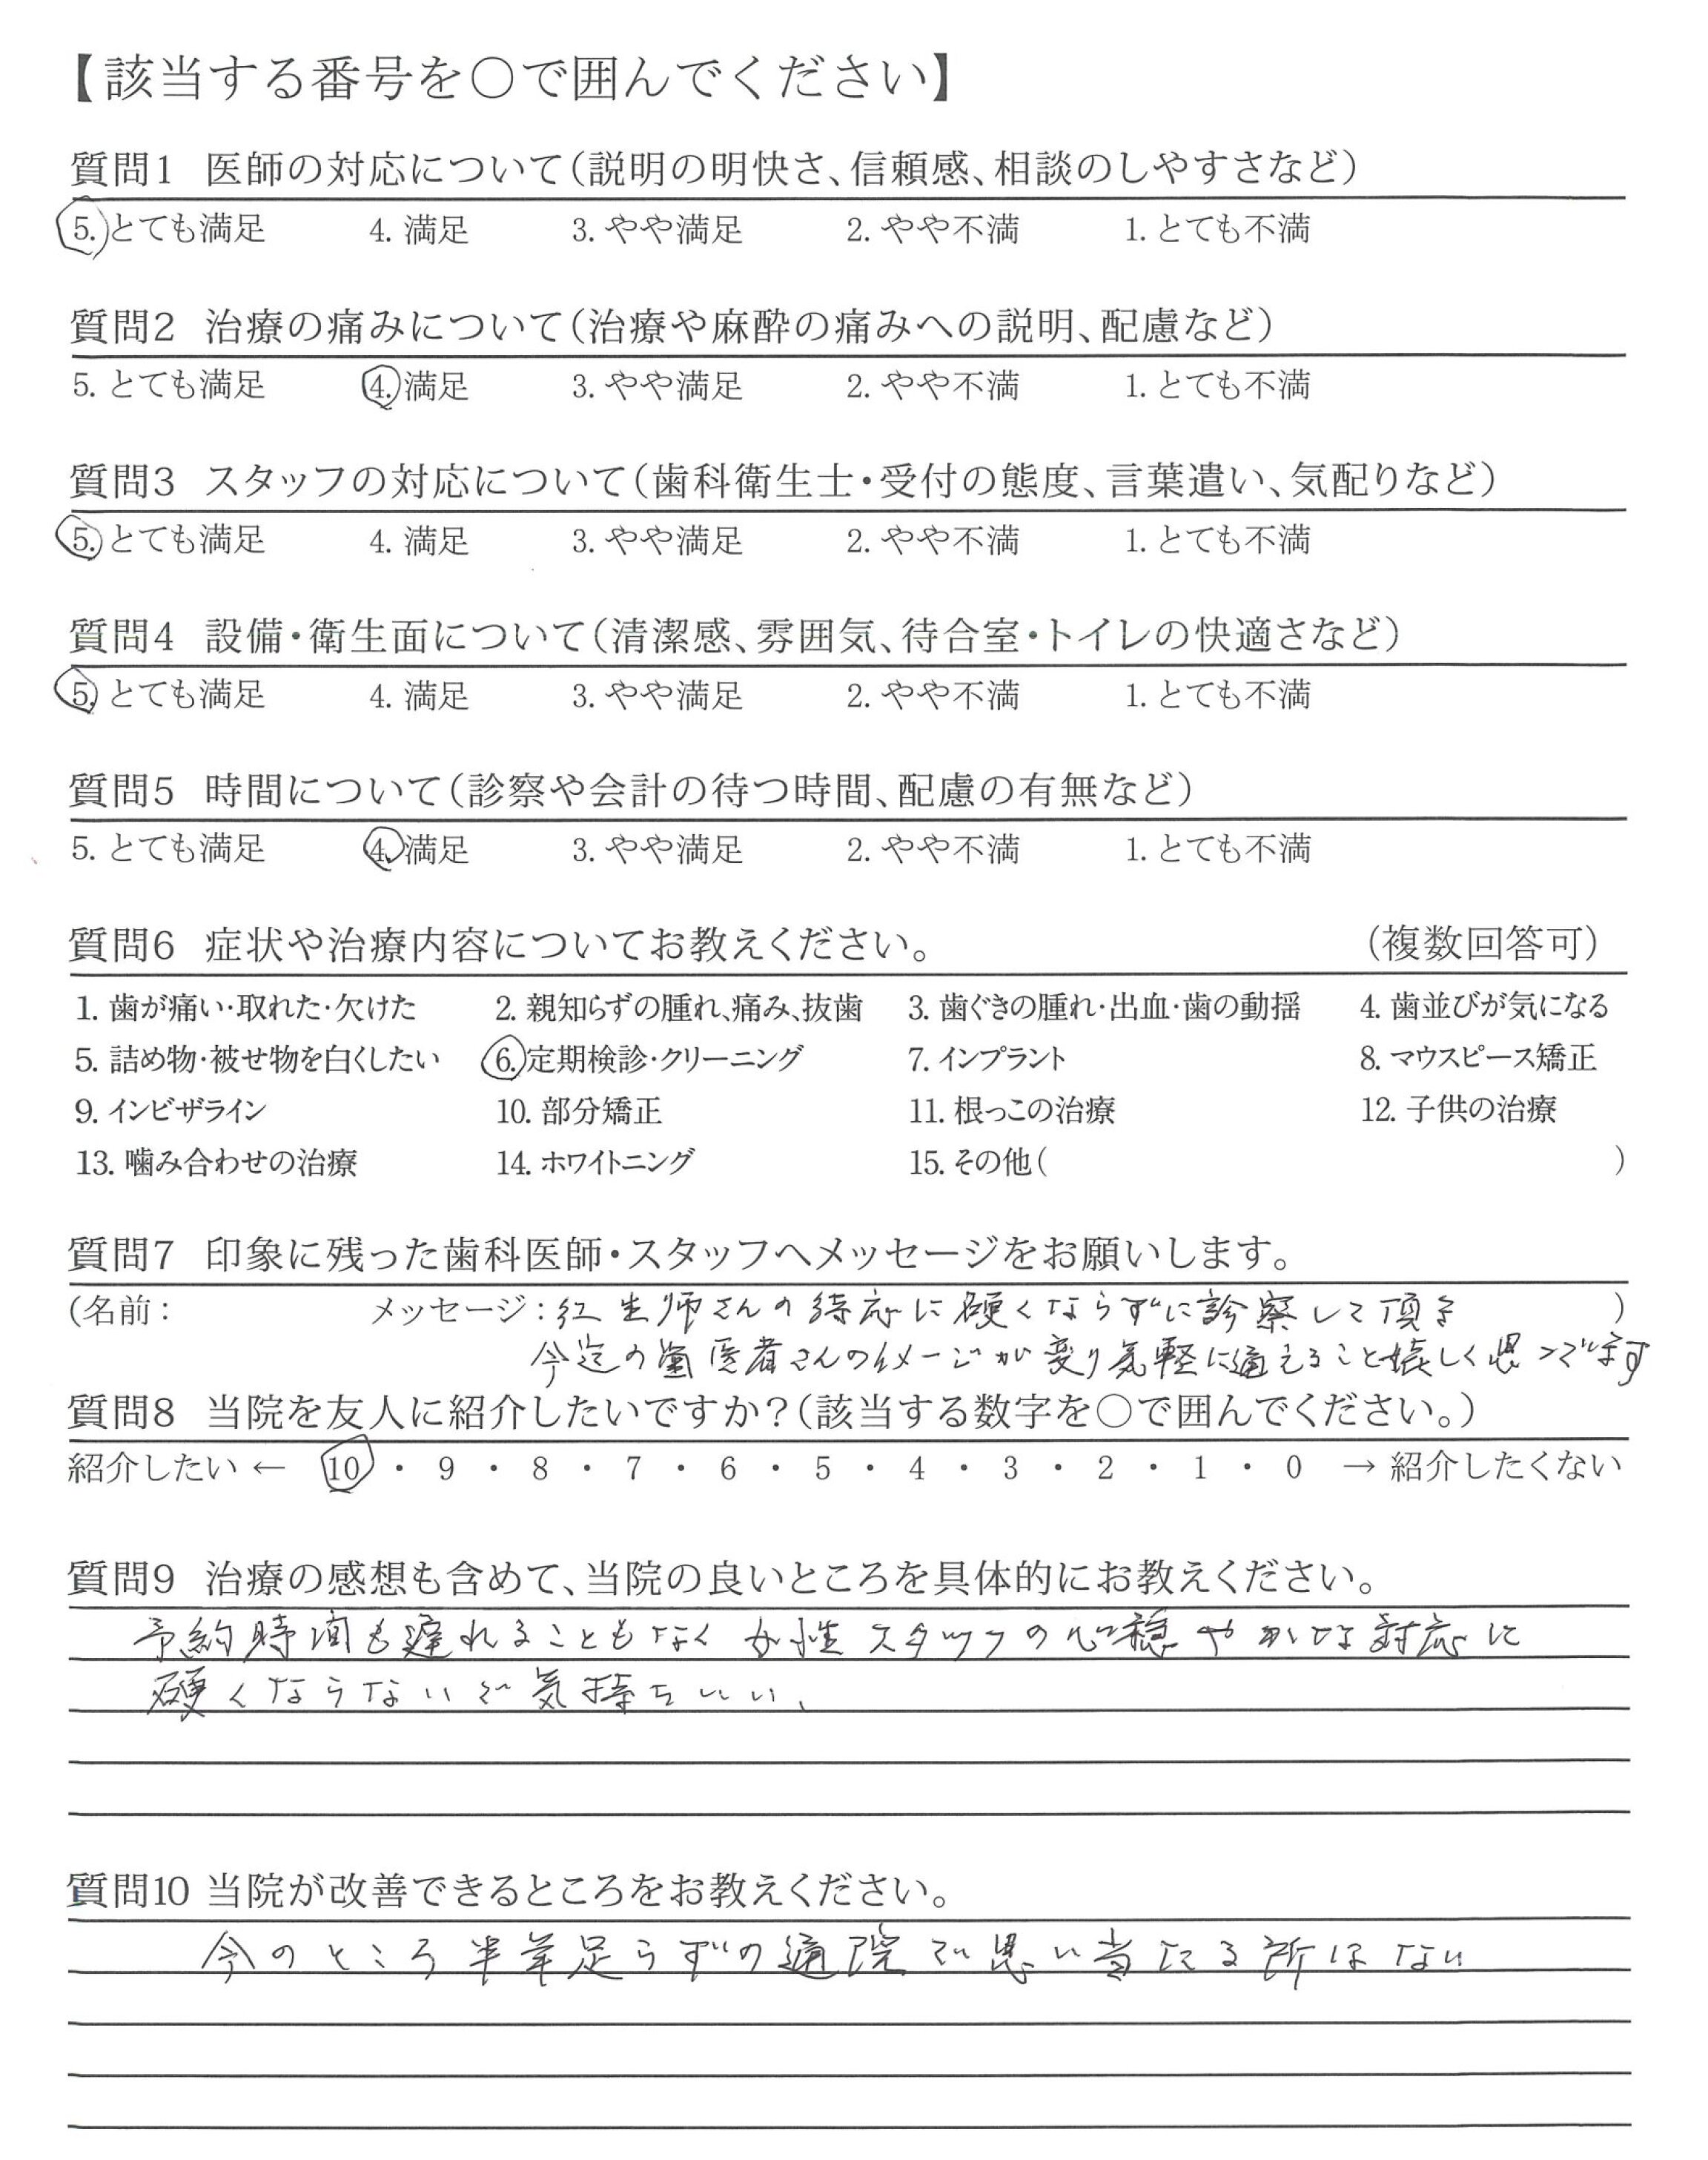 【該当する番号を○で囲んでください】
質問1 医師の対応について(説明の明快さ、信頼感、相談のしやすさなど)
5. とても満足 4. 満足 3. やや満足 2. やや不満 1. とても不満
質問2 治療の痛みについて(治療や麻酔の痛みへの説明、配慮など)
5. とても満足 4. 満足 3. やや満足 2. やや不満 1. とても不満
質問3 スタッフの対応について(歯科衛生士・受付の態度、言葉遣い、気配りなど)
5. とても満足 4. 満足 3. やや満足 2. やや不満 1. とても不満
質問4 設備・衛生面について(清潔感、雰囲気、待合室・トイレの快適さなど)
5. とても満足 4. 満足 3. やや満足 2. やや不満 1. とても不満
質問5 時間について(診察や会計の待つ時間、配慮の有無など)
5. とても満足 4. 満足 3. やや満足 2. やや不満 1. とても不満
質問6 症状や治療内容についてお教えください。 (複数回答可)
1. 歯が痛い・取れた・欠けた 2. 親知らずの腫れ、痛み、抜歯 3. 歯ぐきの腫れ・出血・歯の動揺 4. 歯並びが気になる
5. 詰め物・被せ物を白くしたい 6. 定期検診・クリーニング 7. インプラント 8. マウスピース矯正
9. インビザライン 10. 部分矯正 11. 根っこの治療 12. 子供の治療
13. 噛み合わせの治療 14. ホワイトニング 15. その他( )
質問7 印象に残った歯科医師・スタッフへメッセージをお願いします。
(名前: メッセージ: さんの応に硬くならずに診察して頂き )
今迄の歯医者さんのイメージが変り気軽に通えること嬉しく思ってます
質問8 当院を友人に紹介したいですか?(該当する数字を○で囲んでください。)
紹介したい ← 10 ・ 9 ・ 8 ・ 7 ・ 6 ・ 5 ・ 4 ・ 3 ・ 2 ・ 1 ・ 0 → 紹介したくない
質問9 治療の感想も含めて、当院の良いところを具体的にお教えください。
予約時間も遅れることもなく女性スタッフの心穏やかな対応に
硬くならないで気持ちいい、
質問10 当院が改善できるところをお教えください。
今のところ半年足らずの通院で思い当たる所はない